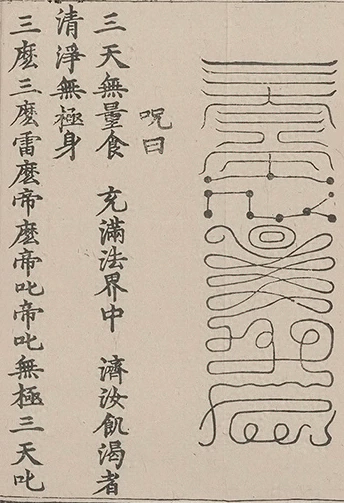 呪曰
三天無量食　充滿法界中　濟汝飢渴者
清淨無極身
三麽三麽雷麽帝麽帝𠮟帝𠮟無極三天𠮟